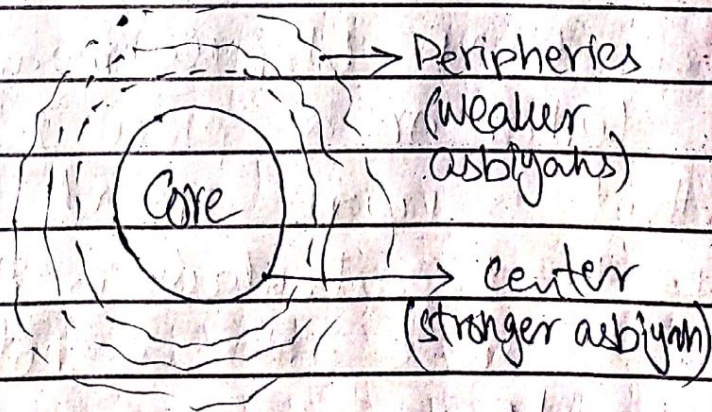 Peripheries
(weaker
asbiyahs)
Core
center
(stronger asbiyah)